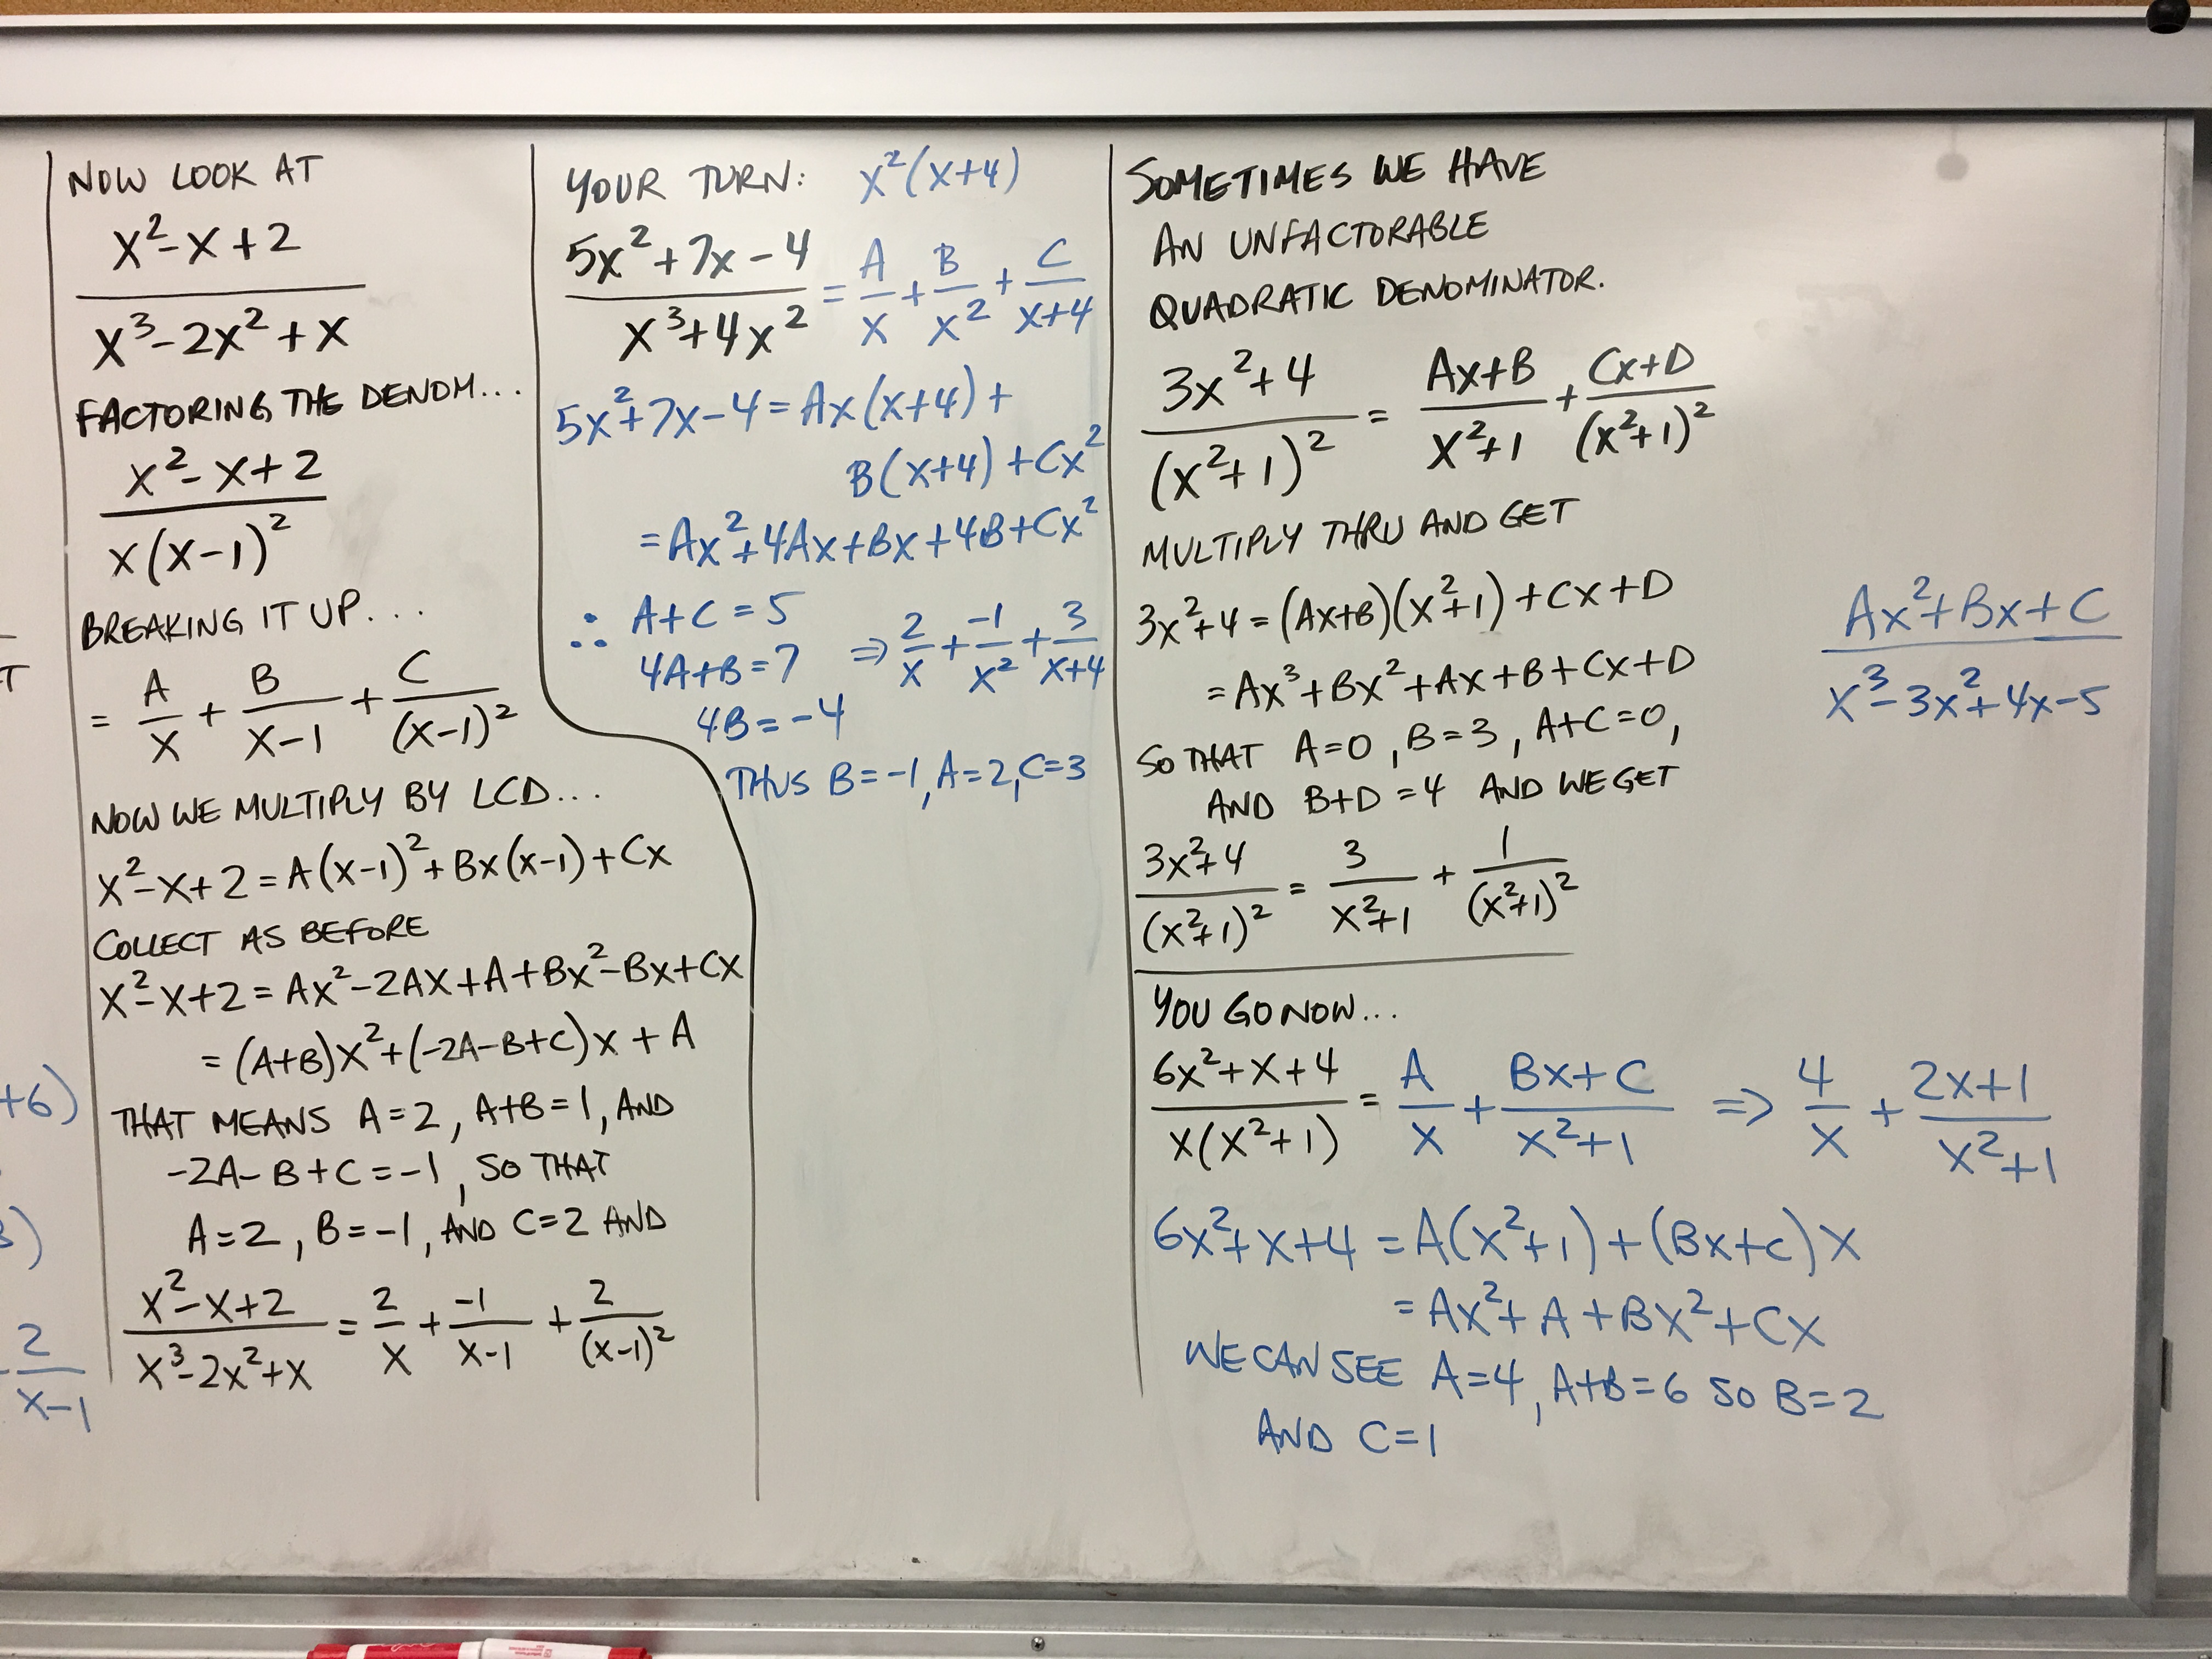 T
+6)
)
2
x-1
NOW LOOK AT
x²-x+2
x³-2x²+x
FACTORING THE DENOM...
x²-x+2
x(x-1)²
BREAKING IT UP...
= A/x + B/(x-1) + C/(x-1)²
NOW WE MULTIPLY BY LCD...
x²-x+2=A(x-1)²+Bx(x-1)+Cx
COLLECT AS BEFORE
x²-x+2=Ax²-2Ax+A+Bx²-Bx+Cx
=(A+B)x²+(-2A-B+C)x+A
THAT MEANS A=2, A+B=1, AND
-2A-B+C=-1, SO THAT
A=2, B=-1, AND C=2 AND
(x²-x+2)/(x³-2x²+x) = 2/x + -1/(x-1) + 2/(x-1)²
YOUR TURN: x²(x+4)
(5x²+7x-4)/(x³+4x²) = A/x + B/x² + C/(x+4)
5x²+7x-4=Ax(x+4)+
B(x+4)+Cx²
=Ax²+4Ax+Bx+4B+Cx²
∴ A+C=5
4A+B=7 ⇒ 2/x + -1/x² + 3/(x+4)
4B=-4
THUS B=-1, A=2, C=3
SOMETIMES WE HAVE
AN UNFACTORABLE
QUADRATIC DENOMINATOR.
(3x²+4)/(x²+1)² = (Ax+B)/(x²+1) + (Cx+D)/(x²+1)²
MULTIPLY THRU AND GET
3x²+4=(Ax+B)(x²+1)+Cx+D
=Ax³+Bx²+Ax+B+Cx+D
SO THAT A=0, B=3, A+C=0,
AND B+D=4 AND WE GET
(3x²+4)/(x²+1)² = 3/(x²+1) + 1/(x²+1)²
YOU GO NOW...
(6x²+x+4)/(x(x²+1)) = A/x + (Bx+C)/(x²+1) ⇒ 4/x + (2x+1)/(x²+1)
6x²+x+4=A(x²+1)+(Bx+C)x
=Ax²+A+Bx²+Cx
WE CAN SEE A=4, A+B=6 SO B=2
AND C=1
Ax²+Bx+C
x³-3x²+4x-5